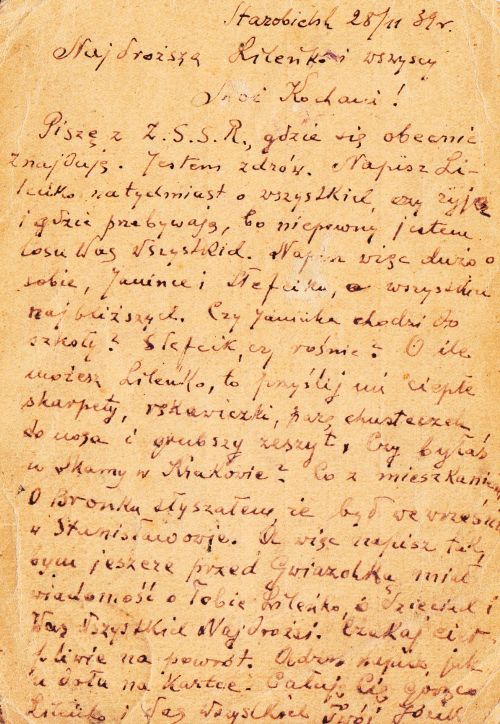 Starobielsk 28/11 39 r.
Najdroższa Lileńko i wszyscy
Moi Kochani!
Piszę z Z.S.S.R., gdzie się obecnie
znajduję. Jestem zdrów. Napisz Li-
leńko natychmiast o wszystkich, czy żyjecie
i gdzie przebywają, bo niepewny jestem
losu Was Wszystkich. Napisz więc dużo o
sobie, Janince i Stefciku, o wszystkich
najbliższych. Czy Janinka chodzi do
szkoły? Stefcik, czy rośnie? O ile
możesz Lileńko, to przyślij mi ciepłe
skarpety, rękawiczki, parę chusteczek
do nosa i grubszy zeszyt. Czy byłaś
u Mamy w Krakowie? Co z mieszkaniem
O Bronku słyszałem że był we wrześniu
w Stanisławowie. A więc napisz tak,
bym jeszcze przed Gwiazdką miał
wiadomość o Tobie Lileńko, o dzieciach i
Was Wszystkich Najdrożsi. Czekaj cier-
pliwie na powrót. Adres napisz jak
u dołu na kartce. Całuję Cię gorąco
Lileńko i Was wszystkich Twój